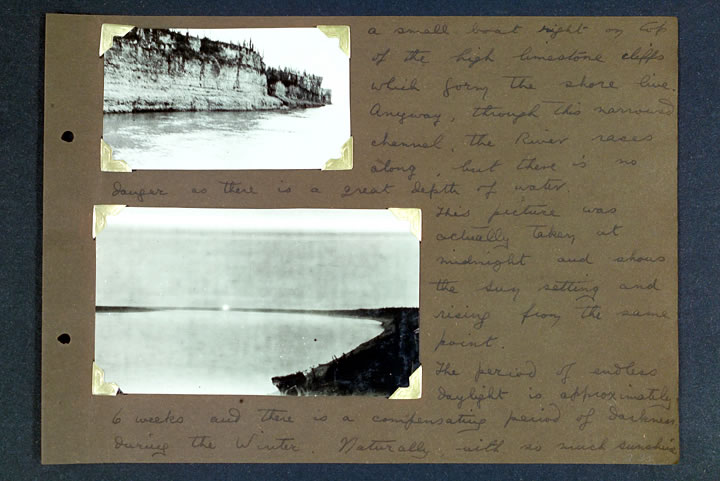 a small boat right on top
of the high limestone cliffs
which form the shore line.
Anyway, through this narrowed
channel, the River races
along, but there is no
danger as there is a great depth of water.
This picture was
actually taken at
midnight and shows
the sun setting and
rising from the same
point.
The period of endless
daylight is approximately
6 weeks and there is a compensating period of darkness
during the Winter. Naturally with so much sunshine